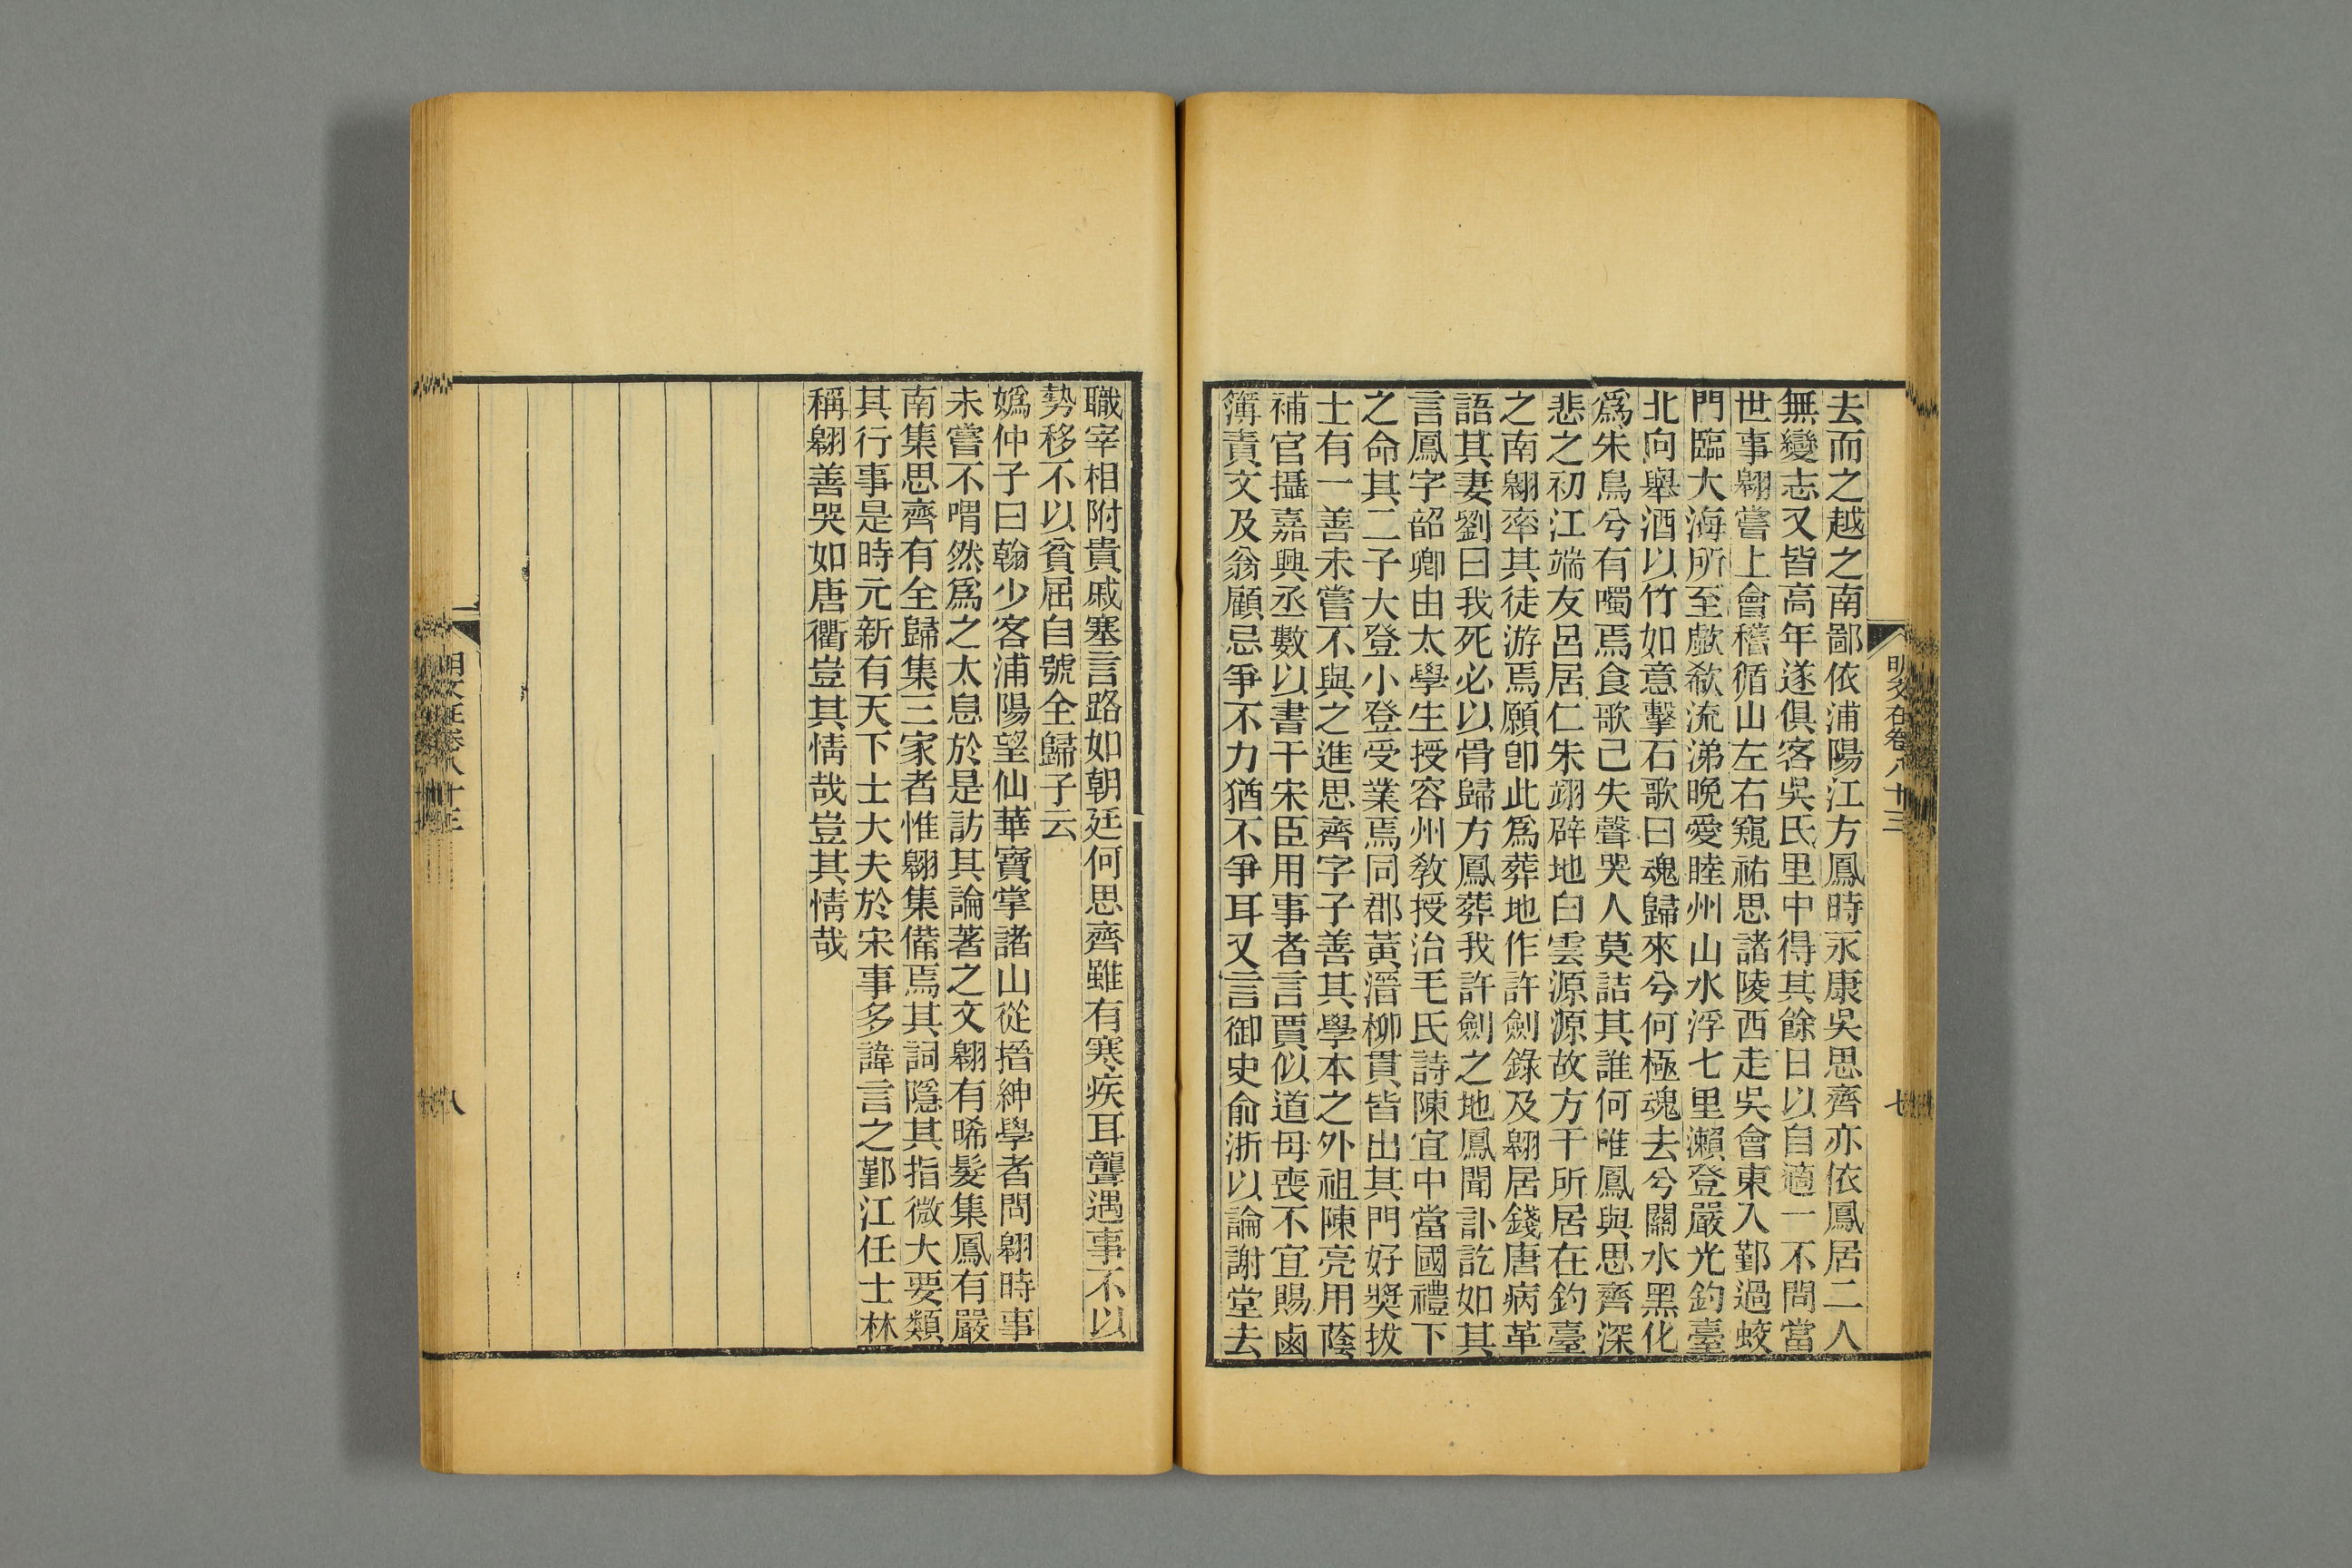 去而之越之南鄙依浦陽江方鳳時永康吳思齊亦依鳳居二人
無變志又皆高年遂俱客吳氏里中得其餘日以自適一不問當
世事翱嘗上會稽循山左右窺祐思諸陵西走吳會東入鄞過蛟
門臨大海所至歔欷流涕晚愛睦州山水浮七里瀨登嚴光釣臺
北向舉酒以竹如意擊石歌曰魂歸來兮何極魂去兮關水黑化
爲朱鳥兮有噣焉食歌已失聲哭人莫詰其誰何唯鳳與思齊深
悲之初江端友呂居仁朱翊辟地白雲源源故方干所居在釣臺
之南翱率其徒游焉願卽此爲葬地作許劍錄及翱居錢唐病革
語其妻劉曰我死必以骨歸方鳳葬我許劍之地鳳聞訃訖如其
言鳳字韶卿由太學生授容州敎授治毛氏詩陳宜中當國禮下
之命其二子大登小登受業焉同郡黃溍柳貫皆出其門好獎拔
士有一善未嘗不與之進思齊字子善其學本之外祖陳亮用蔭
補官攝嘉興丞數以書干宋臣用事者言賈似道母喪不宜賜鹵
簿責文及翁顧忌爭不力猶不爭耳又言御史俞浙以論謝堂去
明文在卷八十三
七
職宰相附貴戚塞言路如朝廷何思齊雖有寒疾耳聾遇事不以
勢移不以貧屈自號全歸子云
嬀仲子曰翰少客浦陽望仙華寶掌諸山從搢紳學者問翱時事
未嘗不喟然爲之太息於是訪其論著之文翱有晞髮集鳳有嚴
南集思齊有全歸集三家者惟翱集備焉其詞隱其指微大要類
其行事是時元新有天下士大夫於宋事多諱言之鄞江任士林
稱翱善哭如唐衢豈其情哉豈其情哉
明文在卷八十三
八